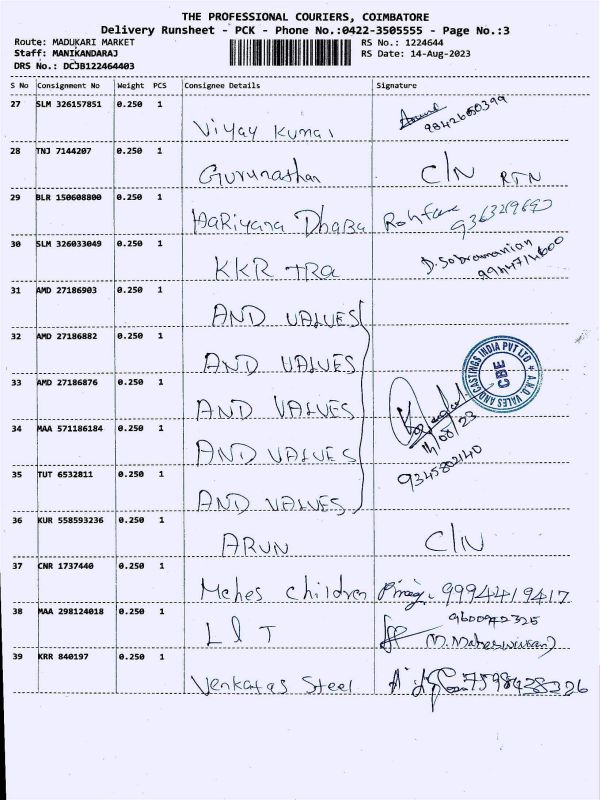 THE PROFESSIONAL COURIERS, COIMBATORE
Delivery Runsheet - PCK - Phone No.:0422-3505555 - Page No.:3
Route: MADUKARI MARKET RS No.: 1224644
Staff: MANIKANDARAJ RS Date: 14-Aug-2023
DRS No.: DCJB122464403
S No Consignment No Weight PCS Consignee Details Signature
27 SLM 326157851 0.250 1
Vijay Kumar
28 TNJ 7144207 0.250 1
Gurunathan C/N RTN
29 BLR 150608800 0.250 1
HaRiyana DhaBa
30 SLM 326033049 0.250 1
KKR TRA D. Sobramanian
31 AMD 27186903 0.250 1
AND VALUES
32 AMD 27186882 0.250 1
AND VALUES
33 AMD 27186876 0.250 1
AND VALUES
A.N.D. VALES AND CASTINGS INDIA PVT LTD
CBE
34 MAA 571186184 0.250 1
AND VALUES
9345802140
35 TUT 6532811 0.250 1
AND VALUES
36 KUR 558593236 0.250 1
ARUN C/N
37 CNR 1737440 0.250 1
Mehes children 9994419417
38 MAA 298124018 0.250 1
L & T 9600942325
39 KRR 840197 0.250 1
Venkatas Steel 7598438226